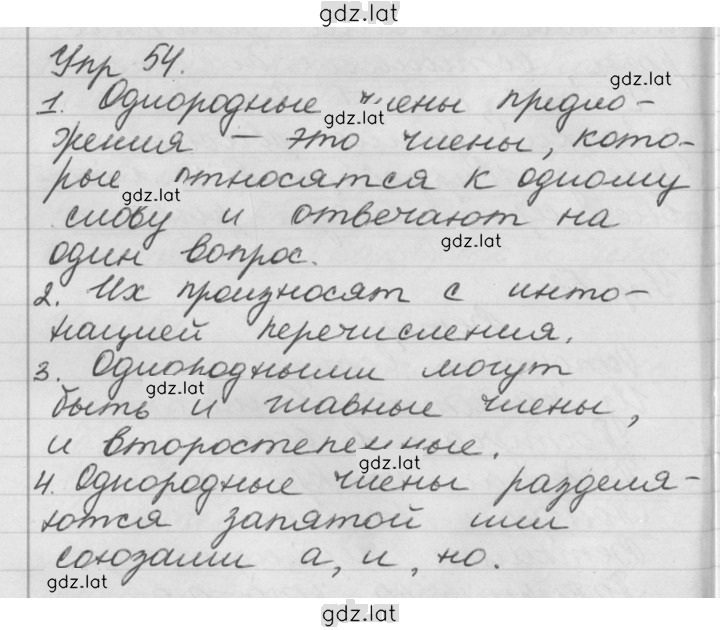 gdz.lat
Упр 54.
gdz.lat
1. Однородные члены предло-
gdz.lat
жения – это члены, кото-
рые относятся к одному
gdz.lat
слову и отвечают на
gdz.lat
один вопрос.
2. Их произносят с инто-
нацией перечисления.
3. Однородными могут
gdz.lat
быть и главные члены,
и второстепенные.
gdz.lat
4. Однородные члены разделя-
ются запятой или
союзами а, и, но.
gdz.lat
gdz.lat